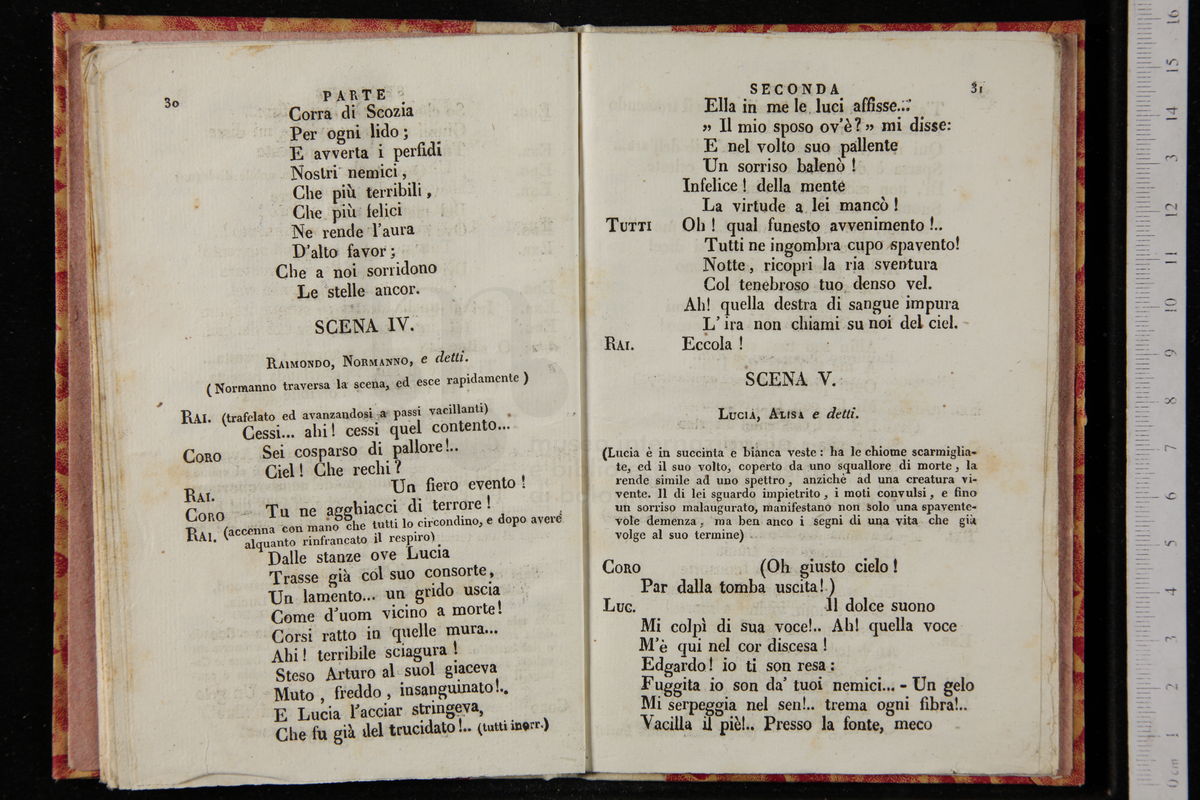 30
PARTE
Corra di Scozia
Per ogni lido ;
E avverta i perfidi
Nostri nemici ,
Che più terribili ,
Che più felici
Ne rende l'aura
D'alto favor ;
Che a noi sorridono
Le stelle ancor.
SCENA IV.
RAIMONDO, NORMANNO, e detti.
( Normanno traversa la scena, ed esce rapidamente )
RAI. (trafelato ed avanzandosi a passi vacillanti)
Cessi... ahi! cessi quel contento...
CORO Sei cosparso di pallore!..
Ciel! Che rechi?
RAI. Un fiero evento !
CORO Tu ne agghiacci di terrore !
RAI. (accenna con mano che tutti lo circondino, e dopo avere
alquanto rinfrancato il respiro)
Dalle stanze ove Lucia
Trasse già col suo consorte,
Un lamento... un grido uscia
Come d'uom vicino a morte!
Corsi ratto in quelle mura...
Ahi! terribile sciagura !
Steso Arturo al suol giaceva
Muto , freddo , insanguinato!..
E Lucia l'acciar stringeva,
Che fu già del trucidato!.. (tutti inorr.)
SECONDA
31
Ella in me le luci affisse...
» Il mio sposo ov'è? » mi disse:
E nel volto suo pallente
Un sorriso balenò !
Infelice ! della mente
La virtude a lei mancò !
TUTTI Oh ! qual funesto avvenimento !..
Tutti ne ingombra cupo spavento!
Notte , ricopri la ria sventura
Col tenebroso tuo denso vel.
Ah! quella destra di sangue impura
L' ira non chiami su noi del ciel.
RAI. Eccola !
SCENA V.
LUCIA, ALISA e detti.
(Lucia è in succinta e bianca veste : ha le chiome scarmiglia-
te, ed il suo volto, coperto da uno squallore di morte , la
rende simile ad uno spettro , anzichè ad una creatura vi-
vente. Il di lei sguardo impietrito , i moti convulsi , e fino
un sorriso malaugurato, manifestano non solo una spavente-
vole demenza , ma ben anco i segni di una vita che già
volge al suo termine)
CORO (Oh giusto cielo !
Par dalla tomba uscita!)
LUC. Il dolce suono
Mi colpì di sua voce!.. Ah! quella voce
M'è qui nel cor discesa !
Edgardo! io ti son resa :
Fuggita io son da' tuoi nemici... - Un gelo
Mi serpeggia nel sen!.. trema ogni fibra!..
Vacilla il piè!.. Presso la fonte, meco